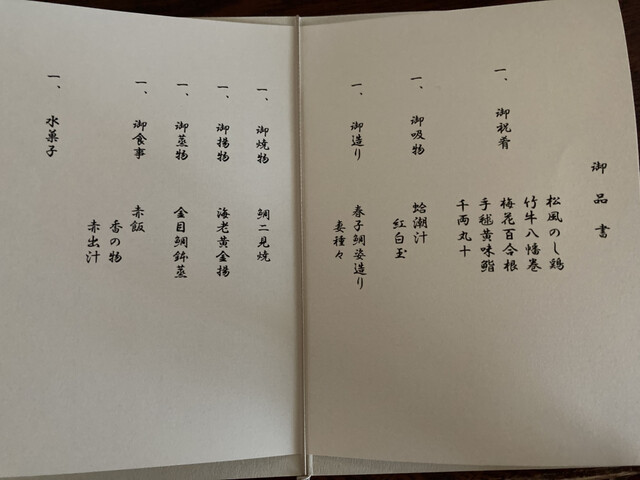 御品書
一、御祝肴
松風のし鶏
竹牛八幡巻
梅花百合根
手毬黄味鮨
千両丸十
一、御吸物
蛤潮汁
紅白玉
一、御造り
春子鯛姿造り
妻種々
一、御焼物
鯛二見焼
一、御揚物
海老黄金揚
一、御蒸物
金目鯛錦蒸
一、御食事
赤飯
香の物
赤出汁
一、水菓子